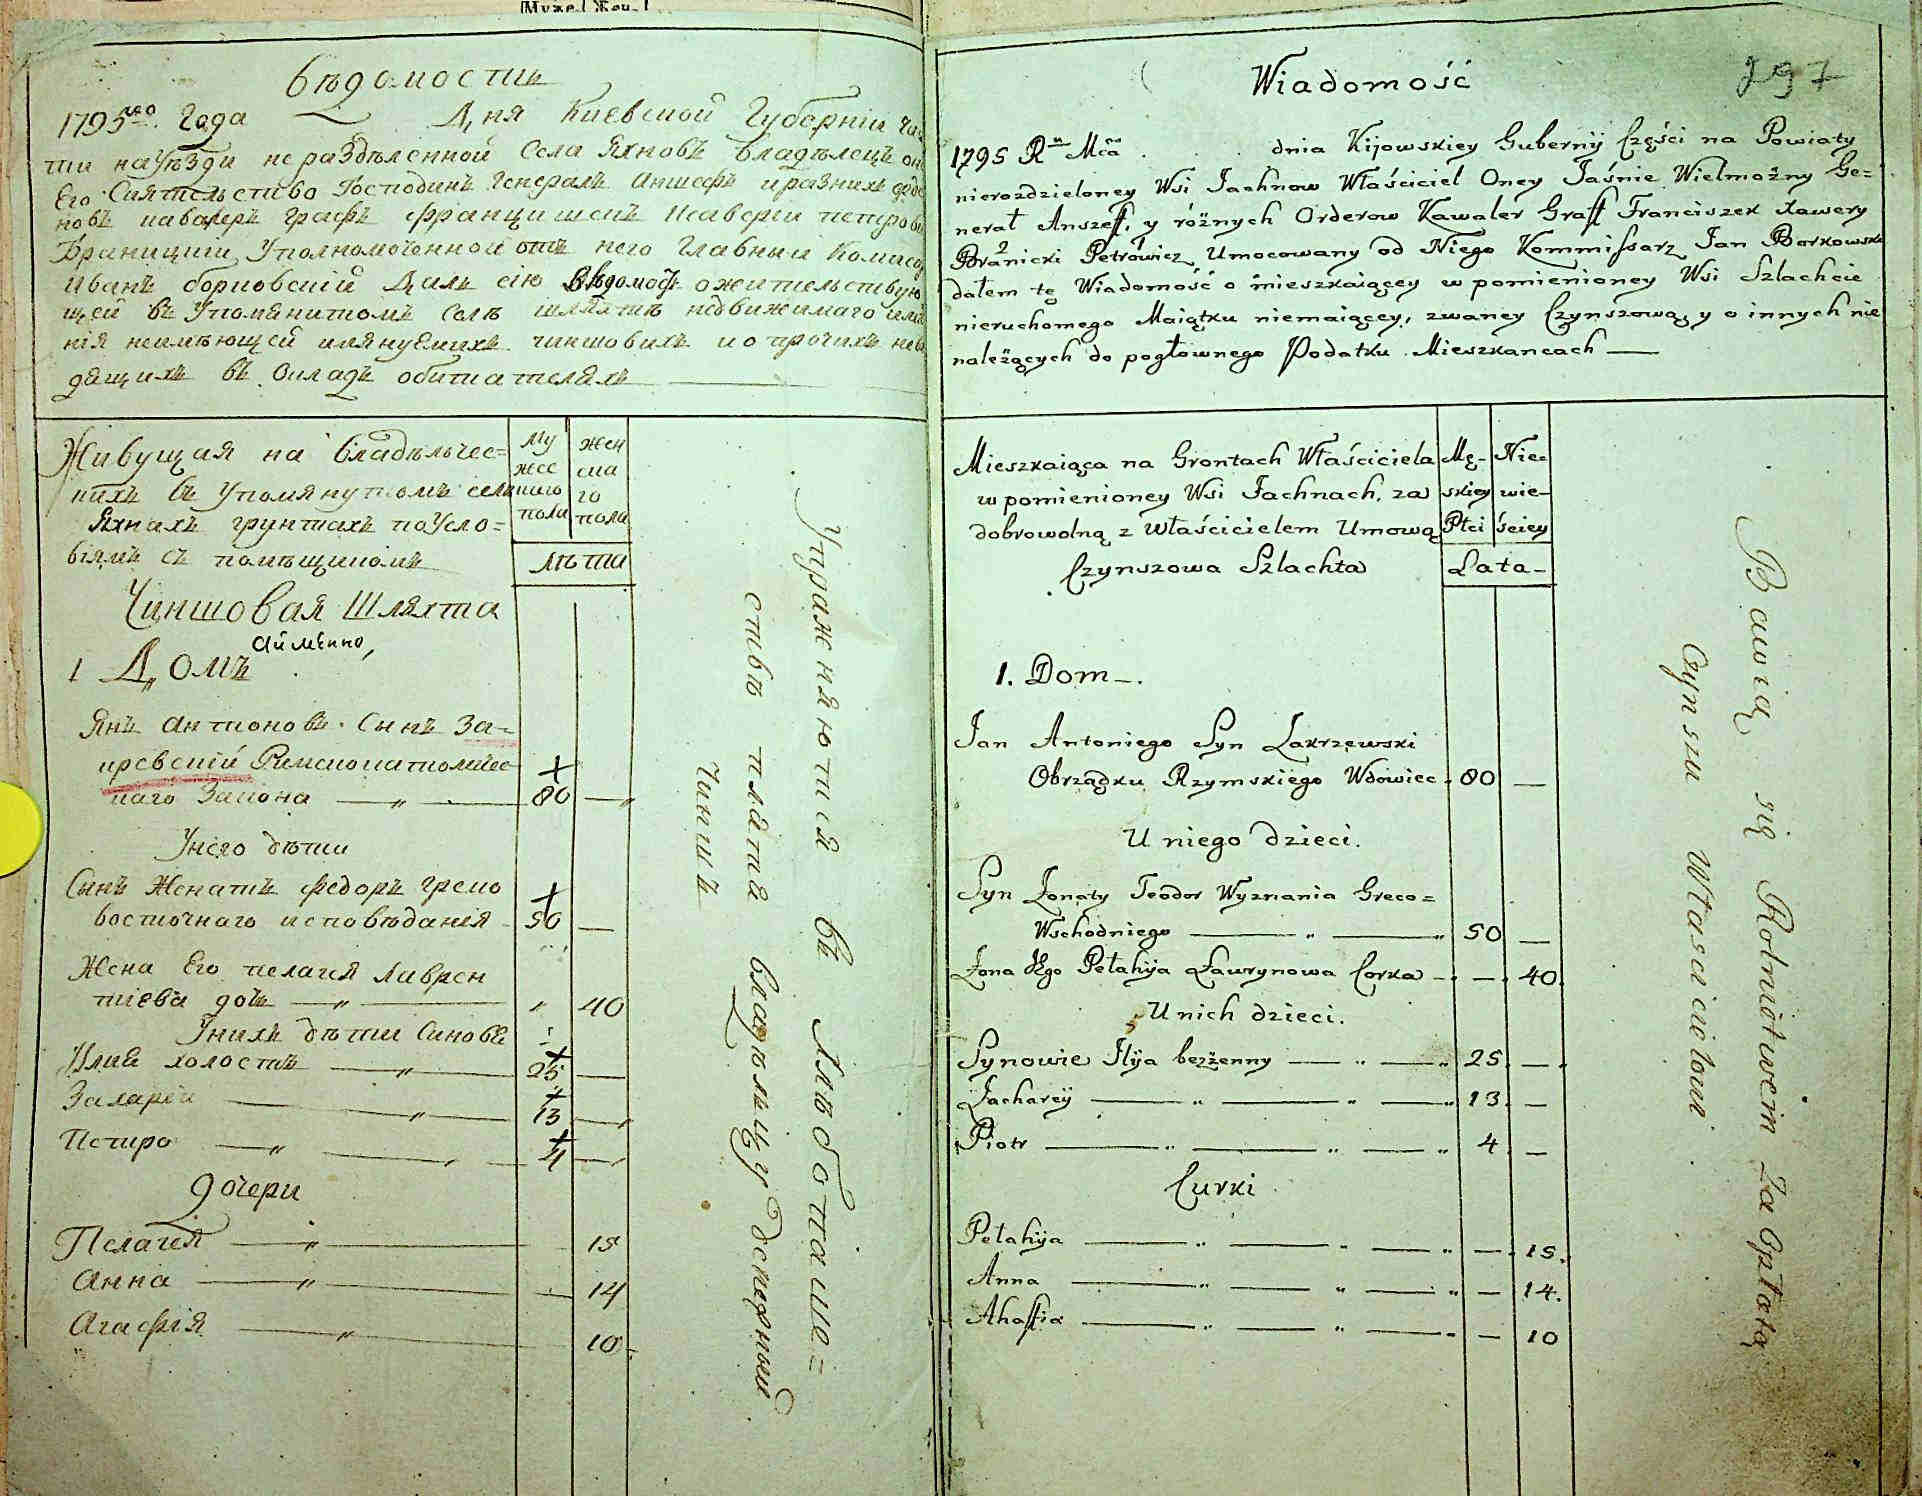 Муже. Жен.
Вѣдомость
1795го. Года Дня Киевской Губернїи Час
ти на Уѣзди нераздѣленной Села Яхновъ владѣлецъ он
Его Сиятельство Господинъ Генералъ Аншефъ и разнихъ орде
новъ кавалеръ графъ Францишекъ Ксаверїи петрови
Браницкїи Уполномоченной отъ него Главнїи Комисар
Иванъ борковскїй Далъ сїю Вѣдомость ожительствую
щей въ Упомянутомъ Селѣ шляхтѣ недвижимаго имѣ
нїя неимѣющей имянуемихъ чиншовихъ и о прочихъ нев
дящихъ въ Окладъ обитателяхъ
Живущая на владѣльчес=
кихъ въ Упомянутомъ селѣ
Яхнахъ грунтахъ по Усло=
вїямъ съ помѣщикомъ
Чиншовая Шляхта
Аймѣнно,
Му
жес
каго
пола
Жен
ска
го
пола
Лѣта
1 Домъ
Янъ Антоновъ Сынъ За=
кревскїй Римскокатоличес
каго Закона 80 —
Унего дѣти
Сынъ Женатъ Федоръ греко
восточнаго исповѣданїя 50 —
Жена Его пелагея Лаврен
тїева дочь 40
Унихъ дѣти Синовѣ
Илия холостъ 25 —
Захарїи 13 —
Петро 4 —
дочери
Пелагея 15
Анна 14
Агафїя 10
Упражняются въ хлѣбопаше=
ствѣ платя владѣльцу денежный
Чиншъ
297
Wiadomość
1795 Rᵘ Mca . . . dnia Kijowskiey Gubernij Części na Powiaty
nierozdzieloney Wsi Jachnow Właściciel Oney Jaśnie Wielmożny Ge=
nerał Anszeff, y różnych Orderow Kawaler Graff Franciszek Xawery
Branicki Petrowicz Umocowany od Niego Kommissarz Jan Borkowski
dałem tę Wiadomość o mieszkaiącey w pomienioney Wsi Szlachcie
nieruchomego Maiątku niemaiącey, zwaney Czynszową, y o innych nie
należących do pogłownego Podatku Mieszkancach —
Mieszkaiąca na Grontach Właściciela
w pomienioney Wsi Jachnach, za
dobrowolną z Właścicielem Umową
Czynszowa Szlachta
Mę-
skiey
Płci
Nie=
wie-
ściey
Lata-
1. Dom —.
Jan Antoniego Syn Zakrzewski
Obrządku Rzymskiego Wdowiec 80 —
U niego dzieci.
Syn Żonaty Teodor Wyznania Greco=
Wschodniego 50 —
Żona Jego Pełahija Ławrynowa Corka — 40.
U nich dzieci.
Synowie Ilija bezżenny 25 —
Zachareij 13 —
Piotr 4 —
Curki
Pełahija — 15.
Anna — 14.
Ahaffia — 10
Bawią się Rolnictwem Za Opłatą
Czynszu Właścicielowi